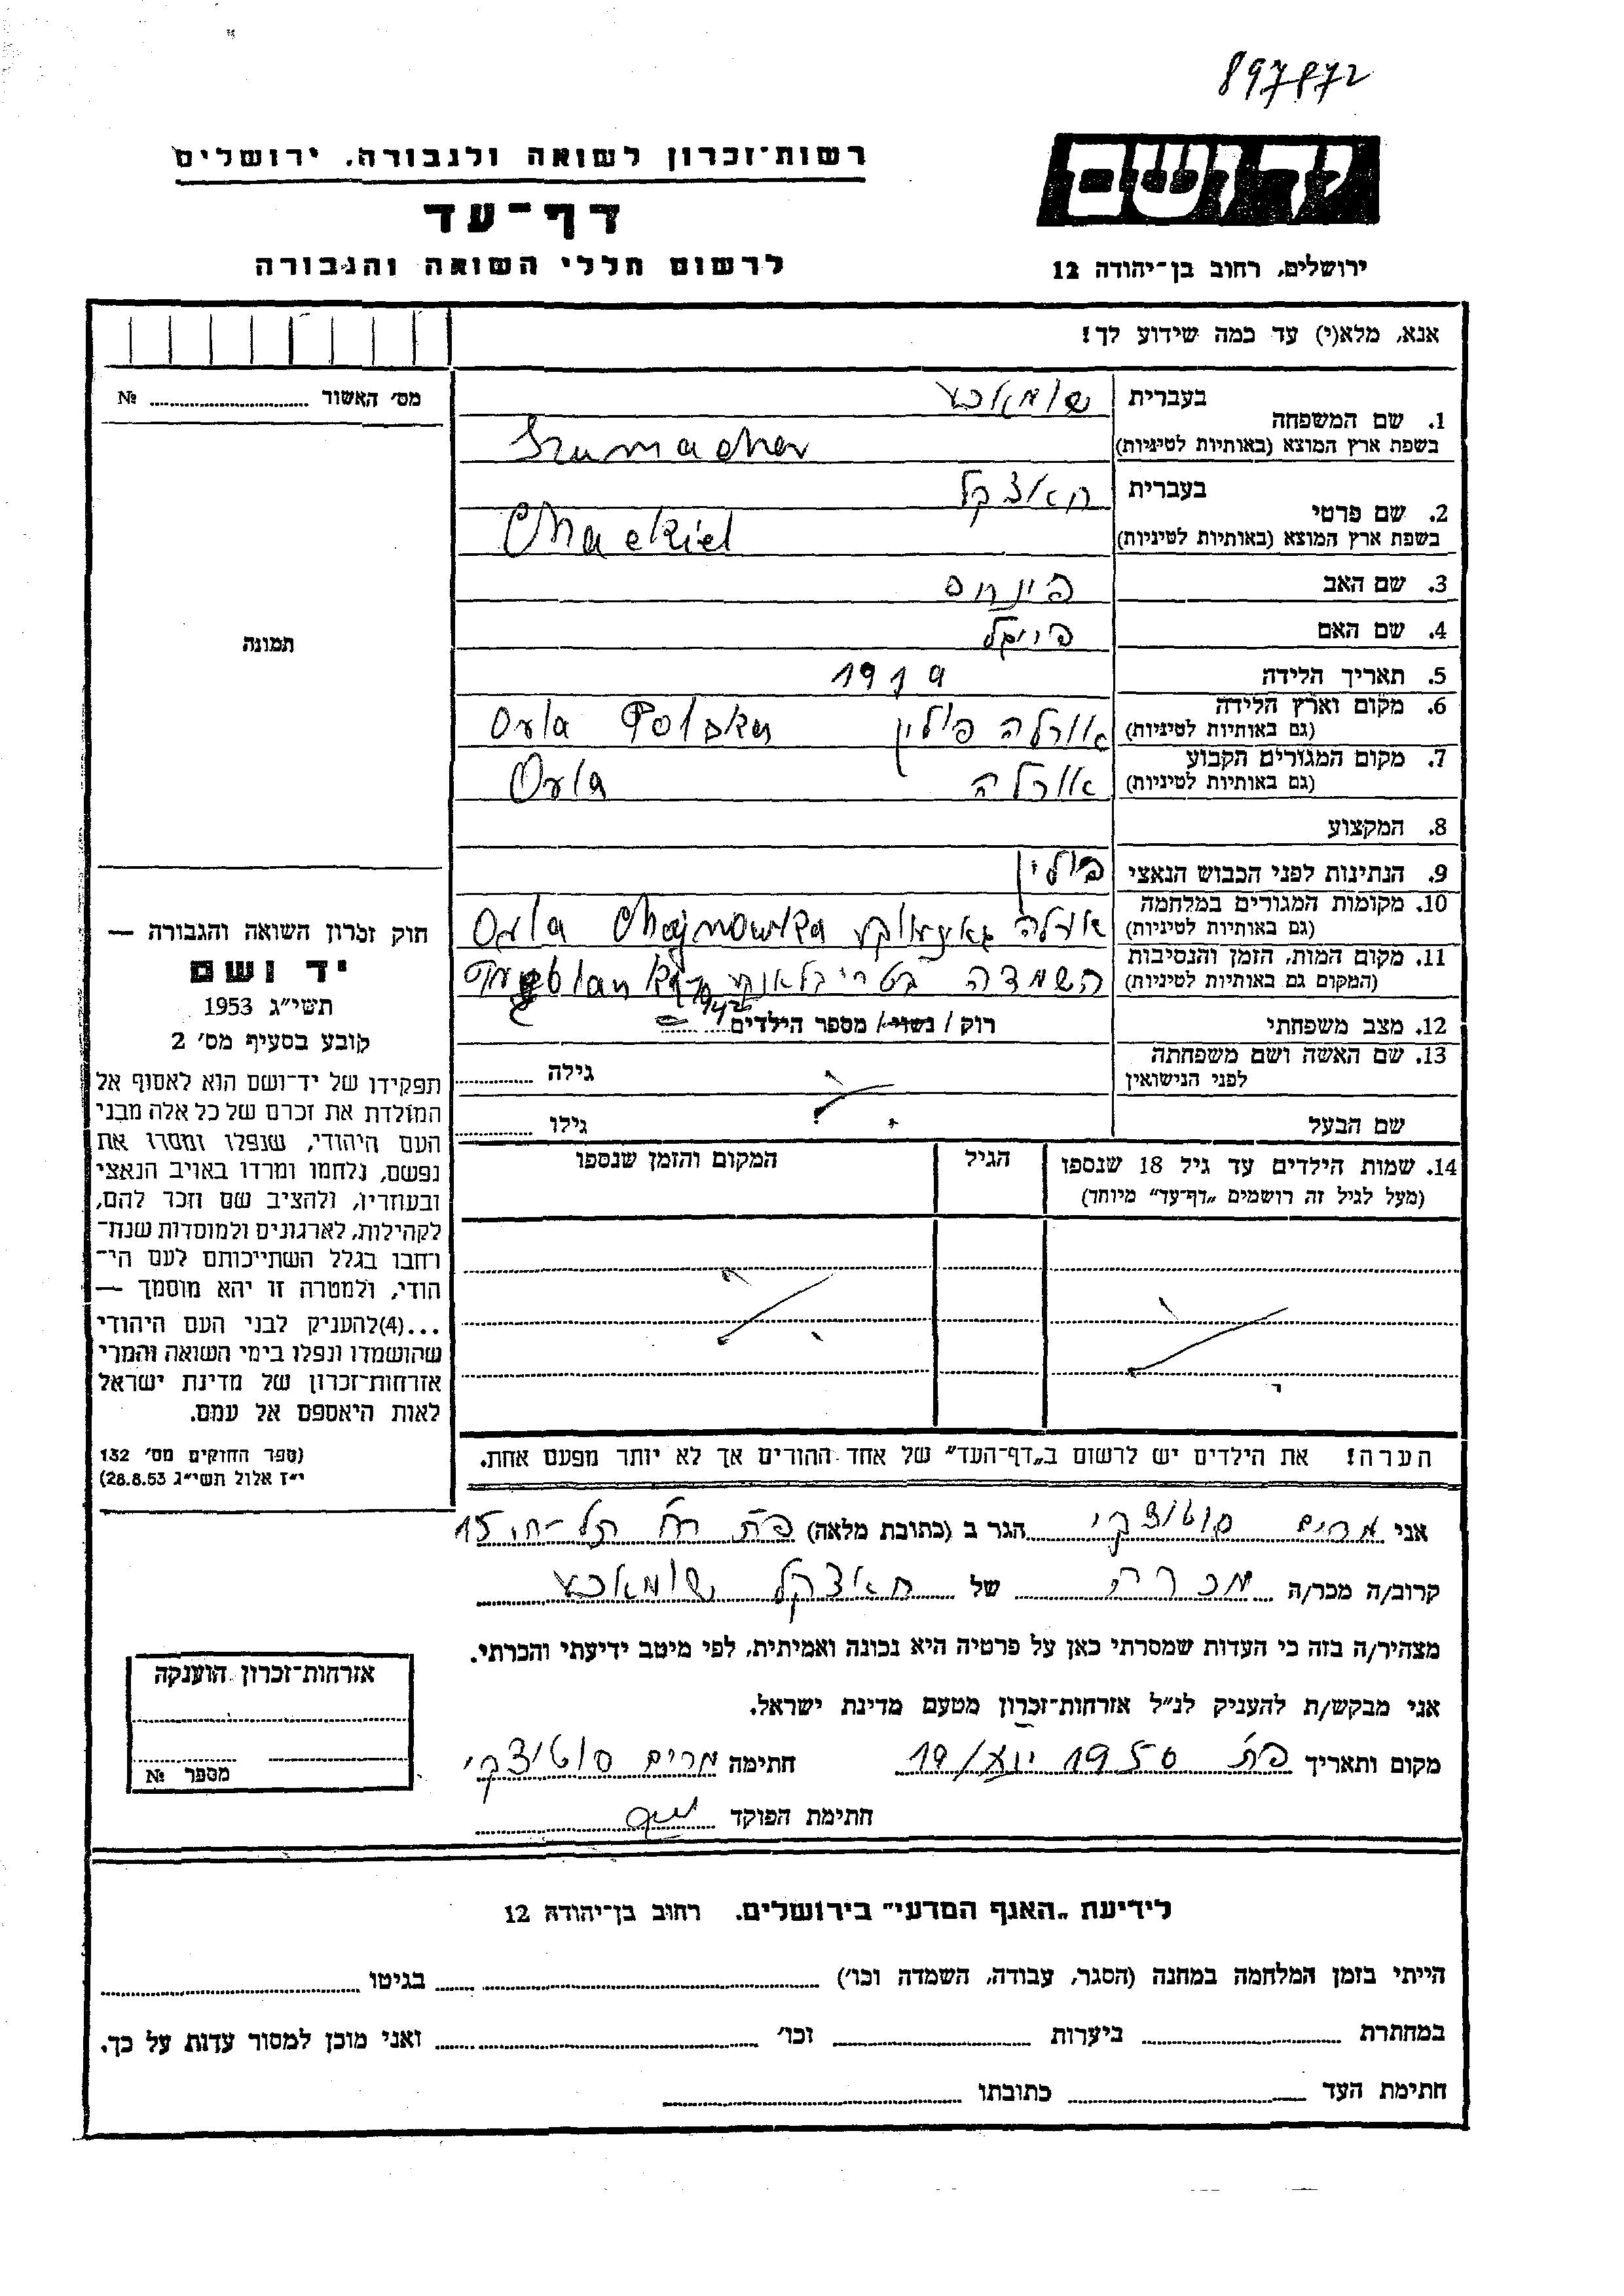 897872
רשות־זכרון לשואה ולגבורה, ירושלים
יד ושם
דף־עד
לרשום חללי השואה והגבורה
ירושלים, רחוב בן־יהודה 12
אנא, מלא(י) עד כמה שידוע לך!
מס׳ האשור № 
1. שם המשפחה בעברית שומאכער
בשפת ארץ המוצא (באותיות לטיניות) Szumacher
2. שם פרטי בעברית חאצקל
בשפת ארץ המוצא (באותיות לטיניות) Chackiel
3. שם האב פינחס
4. שם האם פייגל
תמונה
5. תאריך הלידה 1919
6. מקום וארץ הלידה (גם באותיות לטיניות) אורלה פולין Orla Polska
7. מקום המגורים הקבוע (גם באותיות לטיניות) אורלה Orla
8. המקצוע
9. הנתינות לפני הכבוש הנאצי פולין
10. מקומות המגורים במלחמה (גם באותיות לטיניות) אורלה Orla Chajnowka
11. מקום המות, הזמן והנסיבות (המקום גם באותיות לטיניות) השמדה 1942
12. מצב משפחתי רוק / נשוי / מספר הילדים
13. שם האשה ושם משפחתה לפני הנישואין גילה
שם הבעל גילו
14. שמות הילדים עד גיל 18 שנספו (מעל לגיל זה רושמים „דף־עד״ מיוחד) הגיל המקום והזמן שנספו
חוק זכרון השואה והגבורה —
יד ושם
תשי״ג 1953
קובע בסעיף מס׳ 2
תפקידו של יד־ושם הוא לאסוף אל
המולדת את זכרם של כל אלה מבני
העם היהודי, שנפלו ומסרו את
נפשם, נלחמו ומרדו באויב הנאצי
ובעוזריו, ולהציב שם וזכר להם,
לקהילות, לארגונים ולמוסדות שנח־
רחבו בגלל השתייכותם לעם הי־
הודי, ולמטרה זו יהא מוסמך —
...(4)להעניק לבני העם היהודי
שהושמדו ונפלו בימי השואה והמרי
אזרחות־זכרון של מדינת ישראל
לאות היאספם אל עמם.
(ספר החוקים מס׳ 132
י״ז אלול תשי״ג 28.8.53)
הערה! את הילדים יש לרשום ב„דף־העד״ של אחד ההורים אך לא יותר מפעם אחת.
אני מרים סוטיצקי הגר ב (כתובת מלאה) פ״ת רח׳ תל־חי 15
קרוב/ה מכר/ה מכרה של חאצקל שומאכער
מצהיר/ה בזה כי העדות שמסרתי כאן על פרטיה היא נכונה ואמיתית, לפי מיטב ידיעתי והכרתי.
אני מבקש/ת להעניק לנ״ל אזרחות־זכרון מטעם מדינת ישראל.
מקום ותאריך פ״ת 1956 חתימה מרים סוטיצקי
חתימת הפוקד
אזרחות־זכרון הוענקה
מספר №
לידיעת „האגף המדעי״ בירושלים. רחוב בן־יהודה 12
הייתי בזמן המלחמה במחנה (הסגר, עבודה, השמדה וכו׳) בגיטו
במחתרת ביערות וכו׳ ואני מוכן למסור עדות על כך.
חתימת העד כתובתו